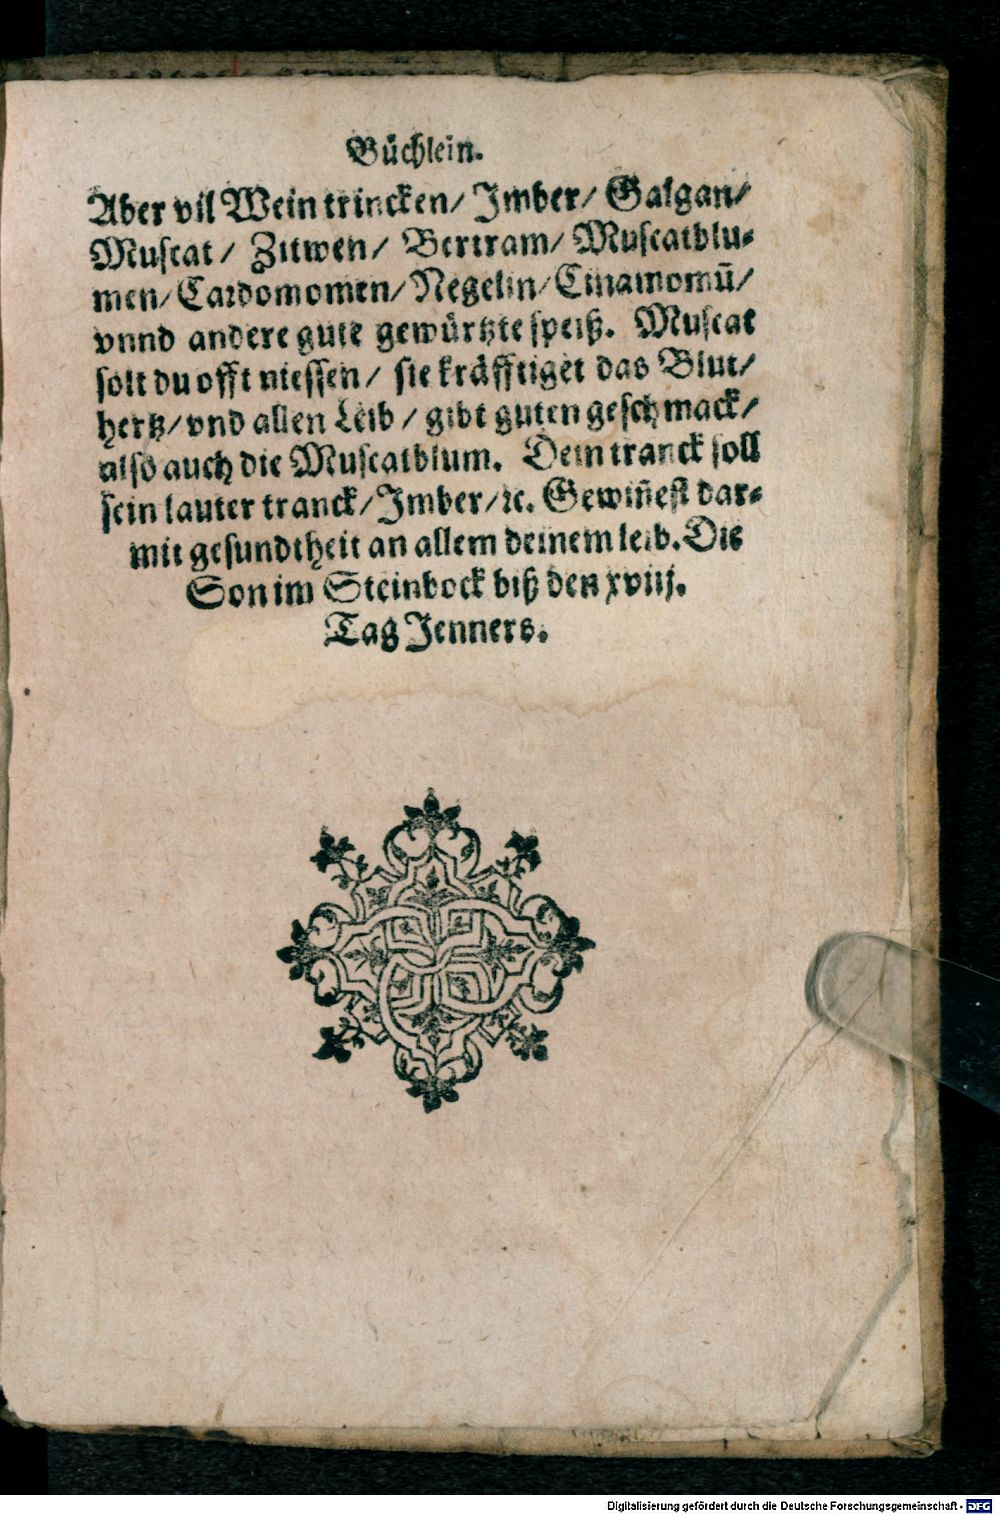 Büchlein.
Aber vil Wein trincken/ Imber/ Galgan/
Muscat/ Zitwen/ Bertram/ Muscatblu⸗
men/ Cardomomen/ Negelin/ Cinamomū/
vnnd andere gute gewürtzte speiß. Muscat
solt du offt niessen/ sie kräfftiget das Blut/
hertz/ vnd allen Leib/ gibt guten geschmack/
also auch die Muscatblum. Dein tranck soll
sein lauter tranck/ Imber/ ꝛc. Gewiñest dar⸗
mit gesundtheit an allem deinem leib. Die
Son im Steinbock biß den xviij.
Tag Jenners.
Digitalisierung gefördert durch die Deutsche Forschungsgemeinschaft - DFG